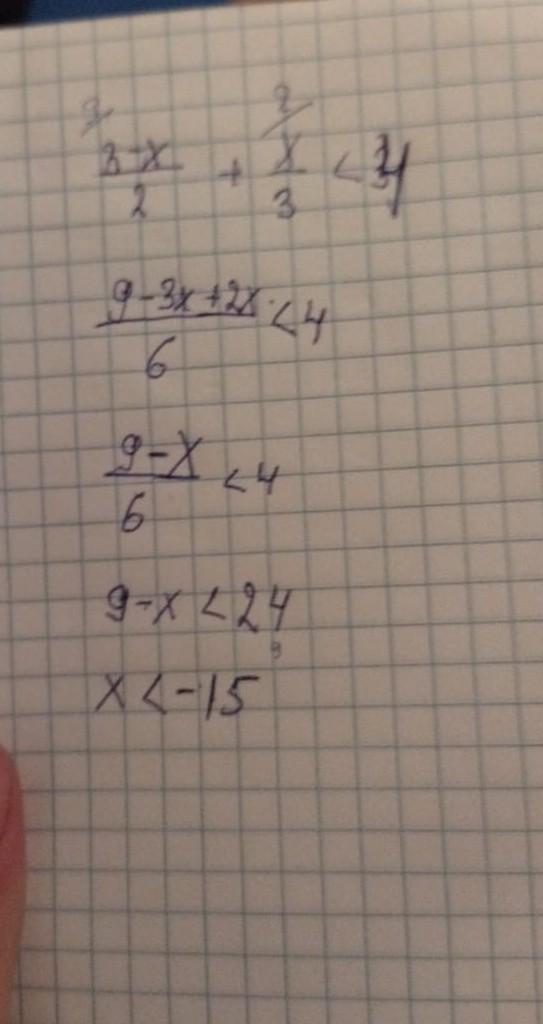 3 2
3-x/2 + x/3 < 4
9-3x+2x/6 < 4
9-x/6 < 4
9-x < 24
x < -15